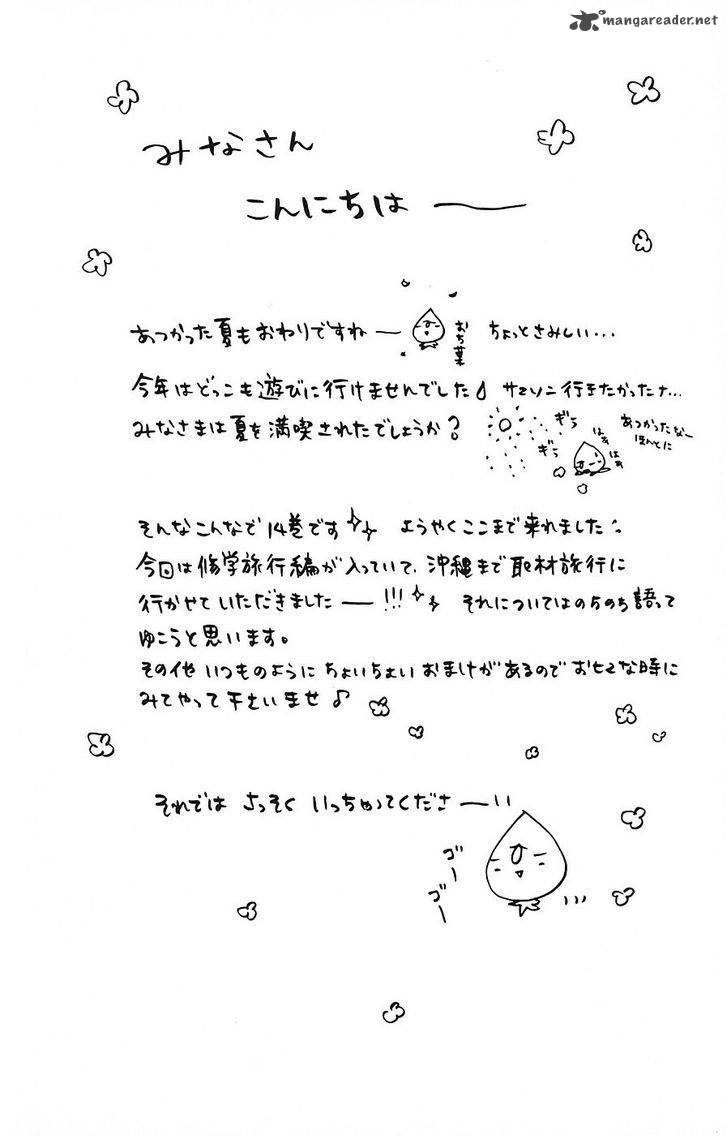 mangareader.net
みなさん
こんにちは ——
あつかった夏もおわりですね — おち葉 ちょっとさみしい...
今年はどこも遊びに行けませんでした サマソニ行きたかったナ...
みなさまは夏を満喫されたでしょうか？
ギラ
ギラ
はぁ
はぁ
あつかったなー
ほんとに
そんなこんなで14巻です ようやくここまで来れました
今回は修学旅行編が入っていて、沖縄まで取材旅行に
行かせていただきました —!!! それについてはのちのち語って
ゆこうと思います。
その他いつものようにちょいちょいおまけがあるのでおヒマな時に
みてやって下さいませ♪
それでは さっそく いっちゃってくださ —い
ゴー
ゴー